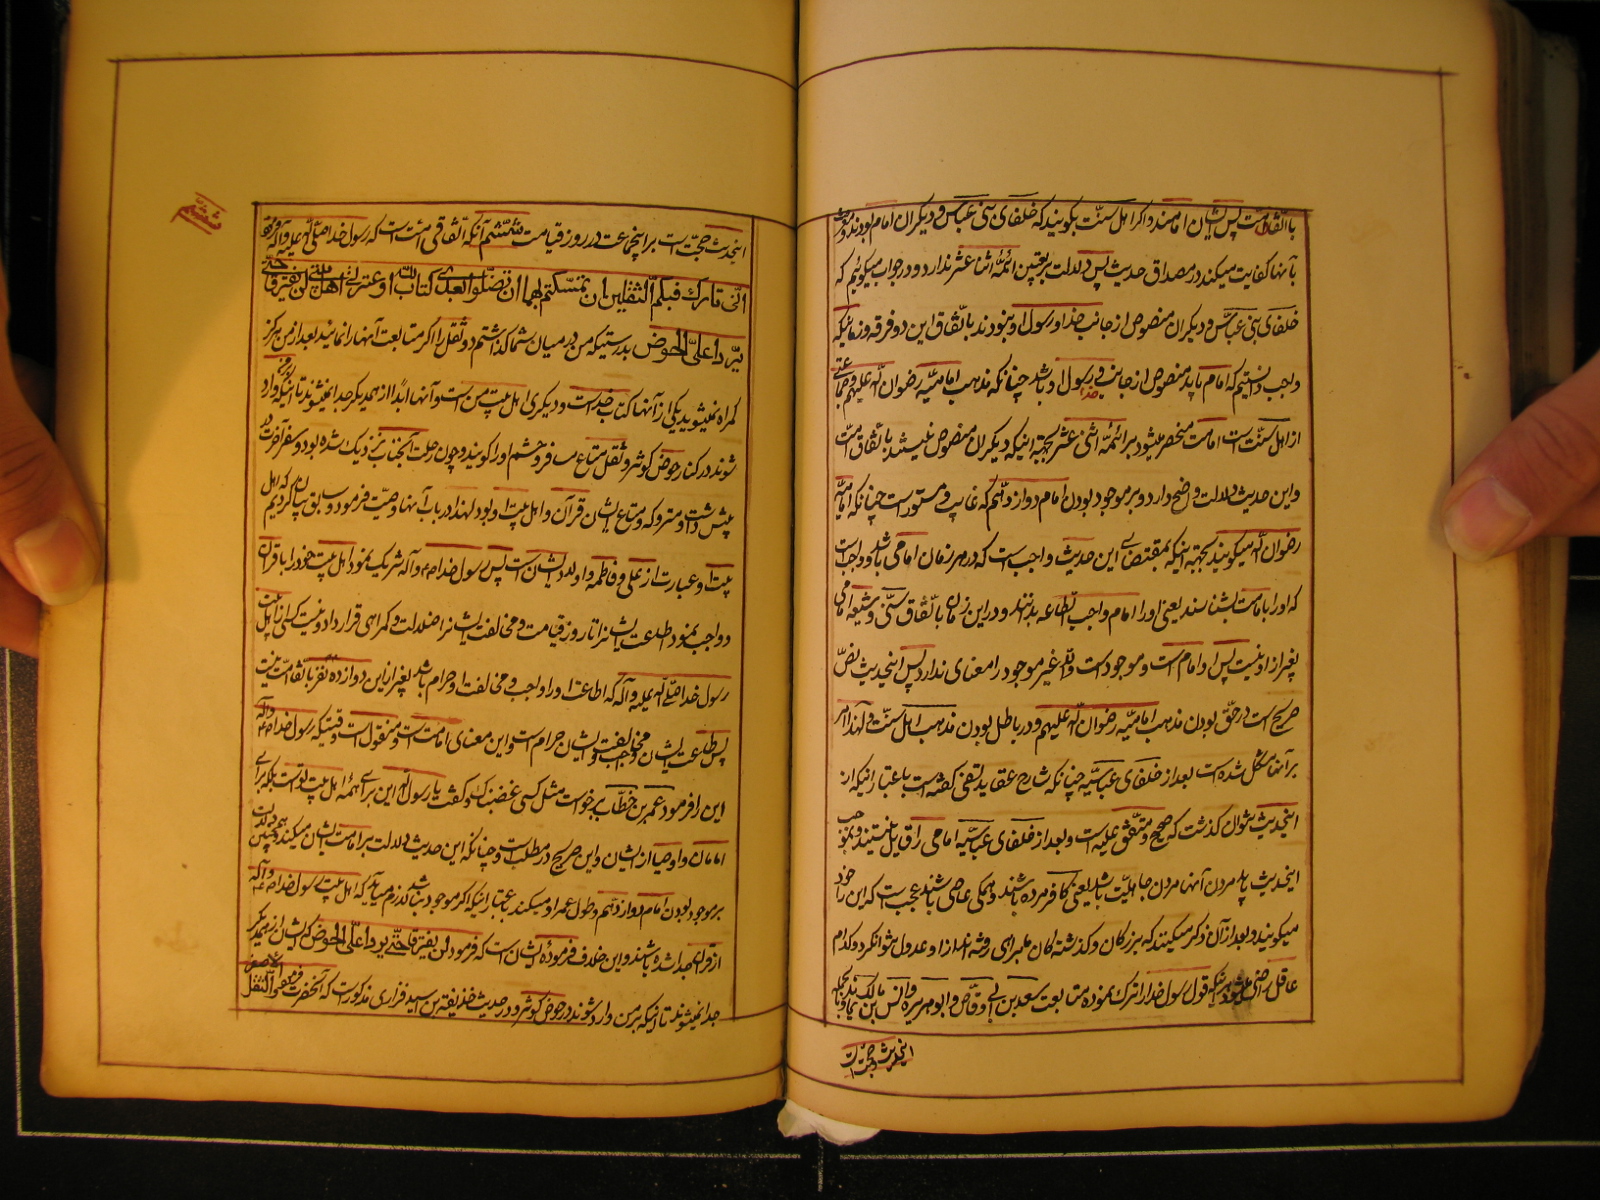 باتفاق امت پس ایشان امامند و اگر اهل سنّت بگویند که خلفای بنی عباس و دیگران امام بودند و حدیث
بآنها کفایت میکند در مصداق حدیث پس دلالت بر تعیین ائمّه اثنا عشر ندارد و در جواب میگوئیم که
خلفای بنی عباس و دیگران منصوص از جانب خدا و رسول او نبودند باتفاق این دو فرقه و زمانیکه
واجب دانستیم که امام باید منصوص از جانب خدا و رسول او باشد چنانکه مذهب امامیّه رضوان الله علیهم و جماعتی
از اهل سنّت است امامت منحصر میشود بر ائمّه اثنی عشر بجهة اینکه دیگران منصوص نیستند باتفاق امت
و این حدیث دلالت واضح دارد و بر موجود بودن امام دوازدهم که غایب و مستور است چنانکه امامیّه
رضوان الله میگویند بجهة اینکه بمقتضای این حدیث واجب است که در هر زمان امامی باشد و واجب است
که او را بامامت بشناسند یعنی او را امام واجب الطاعه بدانند و در این زمان ما باتفاق سنّی و شیعه امامی
بغیر از او نیست پس او امام است و موجود است والّا غیر موجود را معنای ندارد پس اینحدیث نصّ
صریح است در حقّ بودن مذهب امامیّه رضوان الله علیهم و در باطل بودن مذهب اهل سنّت و لهذا امر
بر آنها مشکل شده است بعد از خلفای عباسیّه چنانکه شارح عقاید نسفی گفته است باعتبار اینکه از
اینحدیث نتوان گذشت که صحیح و متّفق علیه است و بعد از خلفای عباسیّه امامی را قایل نیستند و بموجب
اینحدیث باید مردن آنها مردن جاهلیّت باشد یعنی کافر مرده باشند و همگی عاصی باشند عجب است که این را خود
میگویند و بعد از آن ذکر میکنند که بزرگان و گذشته گان ما براهی رفته اند از او عدول نتوانکرد و کدام
عاقل راضی میشود باینکه قول رسول خدا را ترک نموده متابعت سعد بن ابی وقّاص و ابو هریره و انس بن مالک نماید
اینحدیث حجّت است
ششم
اینحدیث حجّت است بر اینجماعت در روز قیامت ششم آنکه اتّفاقی امّت است که رسول خدا صلّی الله علیه و آله فرمود
انّی تارک فیکم الثقلین ان تمسّکتم بهما لن تضلّوا بعدی کتاب الله و عترتی اهل بیتی لن یفترقا حتّی
یردا علیّ الحوض بدرستیکه من در میان شما گذاشتم دو ثقل را اگر متابعت آنها را نمایند بعد از من هرگز
گمراه نمیشوید یکی از آنها کتاب خداست و دیگری اهل بیت من است و آنها ابداً از همدیگر جدا نمیشوند تا اینکه بر من وارد
شوند در کنار حوض کوثر و ثقل متاع سفر و حشم او را گویند و چون رحلت آنجناب نزدیک شده بود و سفر آخرت در
پیش داشت و متروکه و متاع ایشان قرآن و اهل بیت او بود لهذا در باب آنها وصیّت فرمود و سابق بیان کردیم که اهل
بیت او عبارت از علی و فاطمه و اولاد ایشان است پس رسول خدا ص و آله شریک نمود اهل بیت خود را با قرآن
و واجب نمود اطاعت ایشانرا تا روز قیامت و مخالفت ایشانرا ضلالت و گمراهی قرار داد و نیست کسی از اهل بیت
رسول خدا صلّی الله علیه و آله که اطاعت او را واجب و مخالفت او حرام باشد بغیر از این دوازده نفر باتفاق امّت
پس اطاعت ایشان واجب و مخالفت ایشان حرام است و این معنای امامت است و منقول است وقتیکه رسول خدا ص و آله
این را فرمود عمر بن خطّاب برخواست مثل کسی غضبناک و گفت یا رسول الله این برای همه اهل بیت تو است بلکه برای
امامان و اوصیا از ایشان و این صریح در مطلب است و چنانکه این حدیث دلالت بر امامت ایشان میکند همچنین دلالت
بر موجود بودن امام دوازدهم و طول عمر او میکند باعتبار اینکه اگر موجود نباشد لازم میاید که اهل بیت رسول خدا ص و آله
از قرآن جدا شده باشند و این خلاف فرموده ایشان است که فرمود لن یفترقا حتّی یردا علیّ الحوض که ایشان از همدیگر
جدا نمیشوند تا اینکه بر من وارد شوند در حوض کوثر و در حدیث حذیفة بن اسید غفاری مذکور است که آنحضرت فرمود الثقل الاصغر